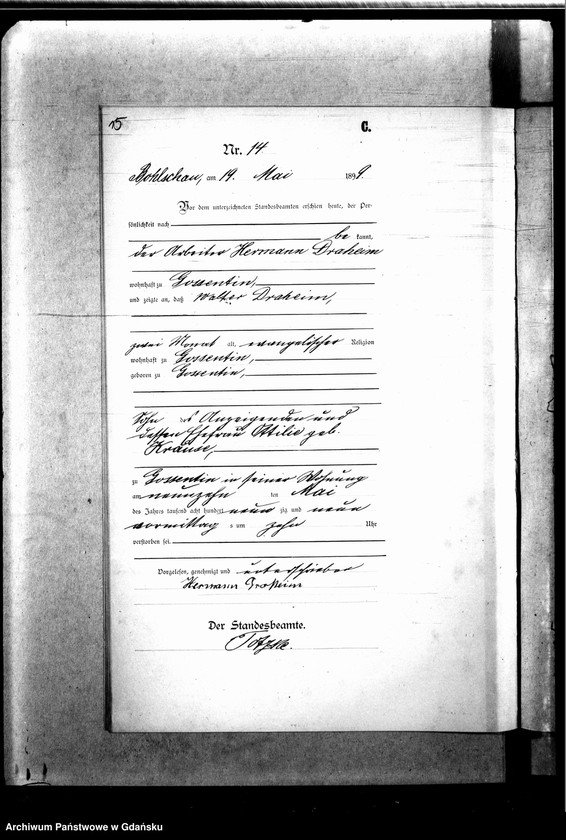 15
C.
Nr. 14
Bohlschau, am 19. Mai 1899.
Vor dem unterzeichneten Standesbeamten erschien heute, der Per-
sönlichkeit nach
be kannt,
der Arbeiter Hermann Draheim
wohnhaft zu Gossentin,
und zeigte an, daß Walter Draheim,
zwei Monat alt, evangelischer Religion
wohnhaft zu Gossentin,
geboren zu Gossentin,
Sohn des Anzeigenden und
dessen Ehefrau Ottilie geb.
Krause,
zu Gossentin in seiner Wohnung
am neunzehn ten Mai
des Jahres tausend acht hundert neun zig und neun
vormittag s um zehn Uhr
verstorben sei.
Vorgelesen, genehmigt und unterschrieben
Hermann Draheim
Der Standesbeamte.
Archiwum Państwowe w Gdańsku